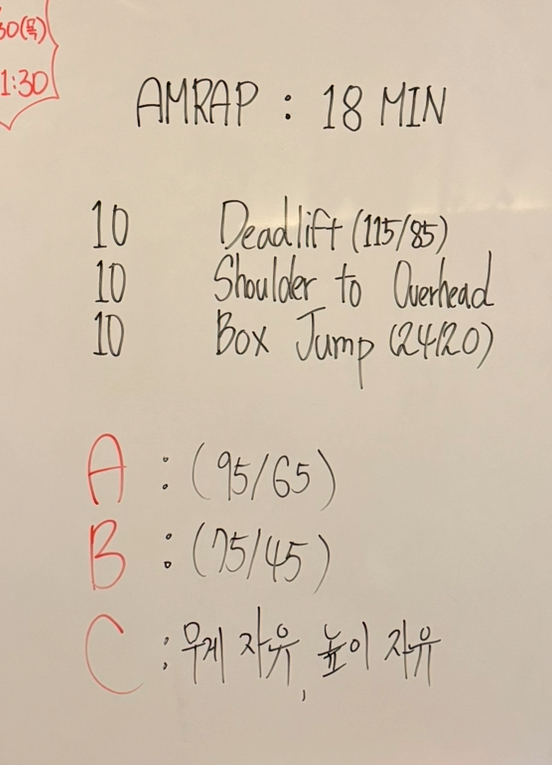 30(목)
1:30
AMRAP : 18 MIN
10 Deadlift (115/85)
10 Shoulder to Overhead
10 Box Jump (24/20)
A : (95/65)
B : (75/45)
C : 무게 자유, 높이 자유